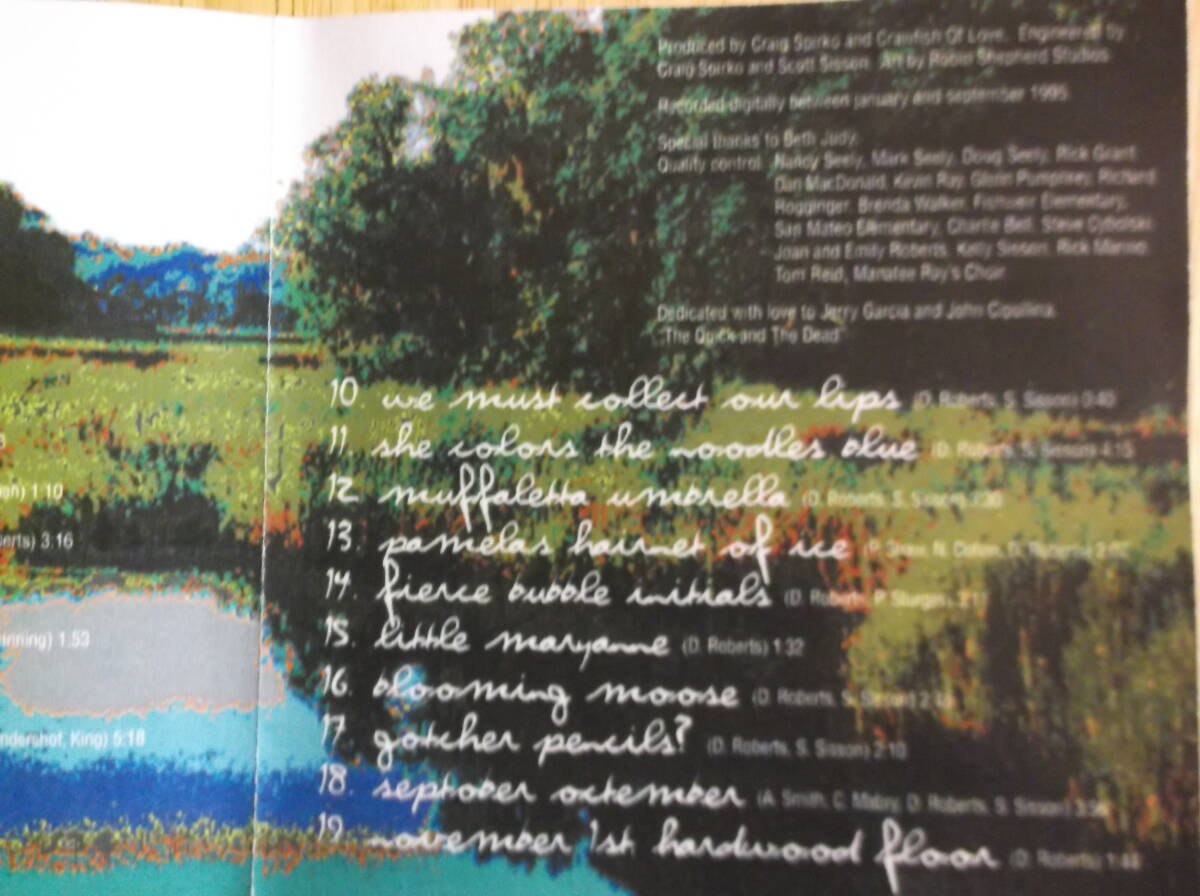 Produced by Craig Spirko and Crawfish Of Love. Engineered by
Craig Spirko and Scott Sisson. Art by Robin Shepherd Studios.
Recorded digitally between january and september 1995.
Special thanks to Beth Judy.
Quality control: Nancy Seely, Mark Seely, Doug Seely, Rick Grant,
Dan MacDonald, Kevin Ray, Glenn Pumphrey, Richard
Rogginger, Brenda Walker, Fishweir Elementary,
San Mateo Elementary, Charlie Bell, Steve
Joan and Emily Roberts, Kelly Sisson, Rick
Tom Reid, Manatee Ray's Choir
Dedicated with love to Jerry Garcia and John Cipollina,
"The Quick and The Dead"
10. we must collect our lips (D. Roberts, S. Sisson) 0:40
11. she colors the noodles blue (D. Roberts, S. Sisson) 4:15
12 muffaletta umbrella (D. Roberts, S. Sisson)
) 1:10
13. pamelas hairnet of ice
erts) 3:16
14. fierce bubble initials (D. Roberts, P. Sturgis)
15. little maryanne (D. Roberts) 1:32
nning) 1:53
16. blooming moose (D. Roberts, S. Sisson)
17. gotcher pencils? (D. Roberts, S. Sisson) 2:10
ndershot, King) 5:18
18. septober octember (A. Smith, C. Mabry, D. Roberts, S. Sisson)
19. november 1st hardwood floor (D. Roberts)